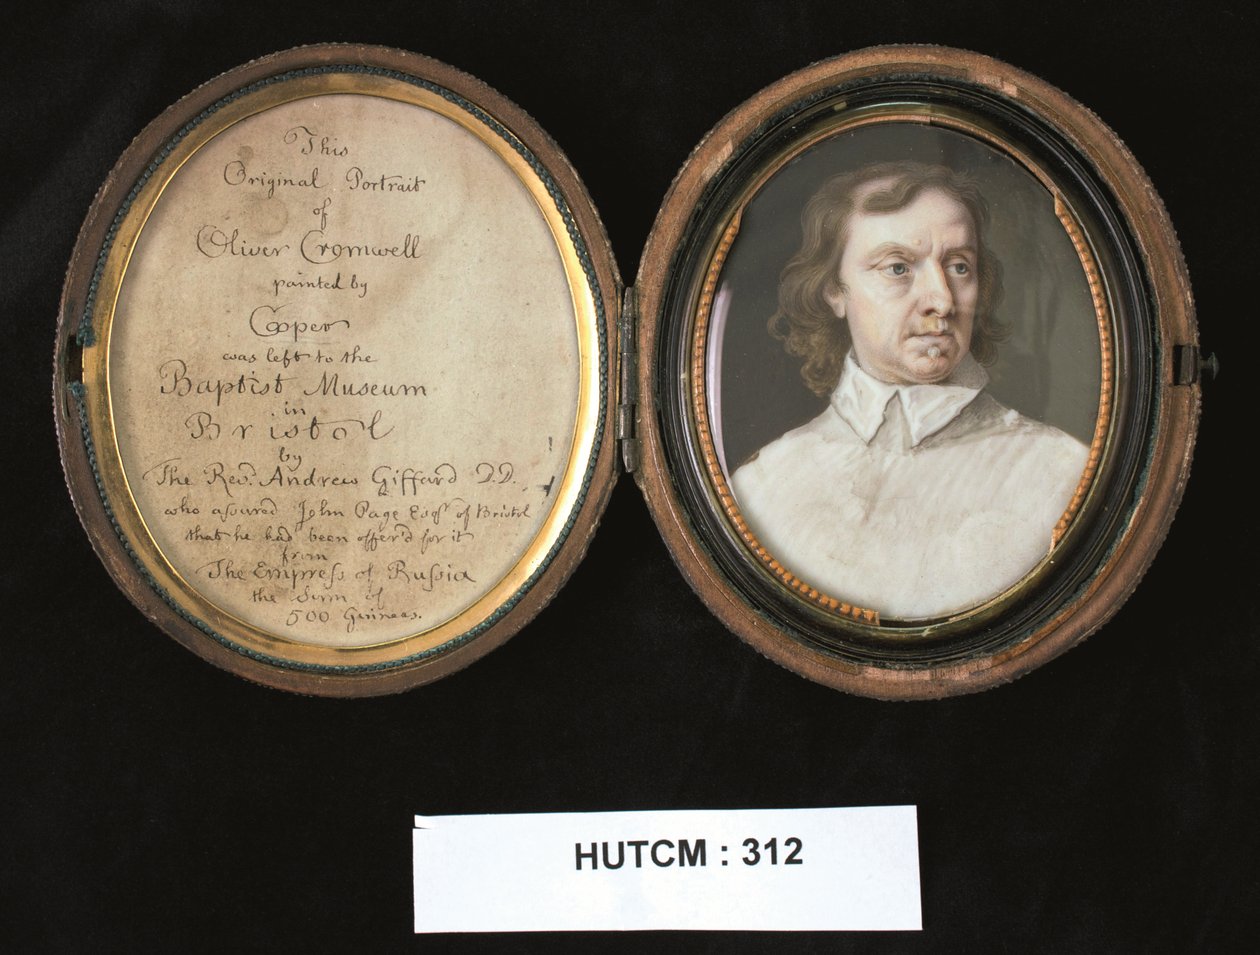 This
Original Portrait
of
Oliver Cromwell
painted by
Cooper
was left to the
Baptist Museum
in
Bristol
by
The Revd. Andrew Giffard D.D.
who assured John Page Esqr. of Bristol
that he had been offer'd for it
from
The Empress of Russia
the Sum of
500 Guineas.
HUTCM : 312